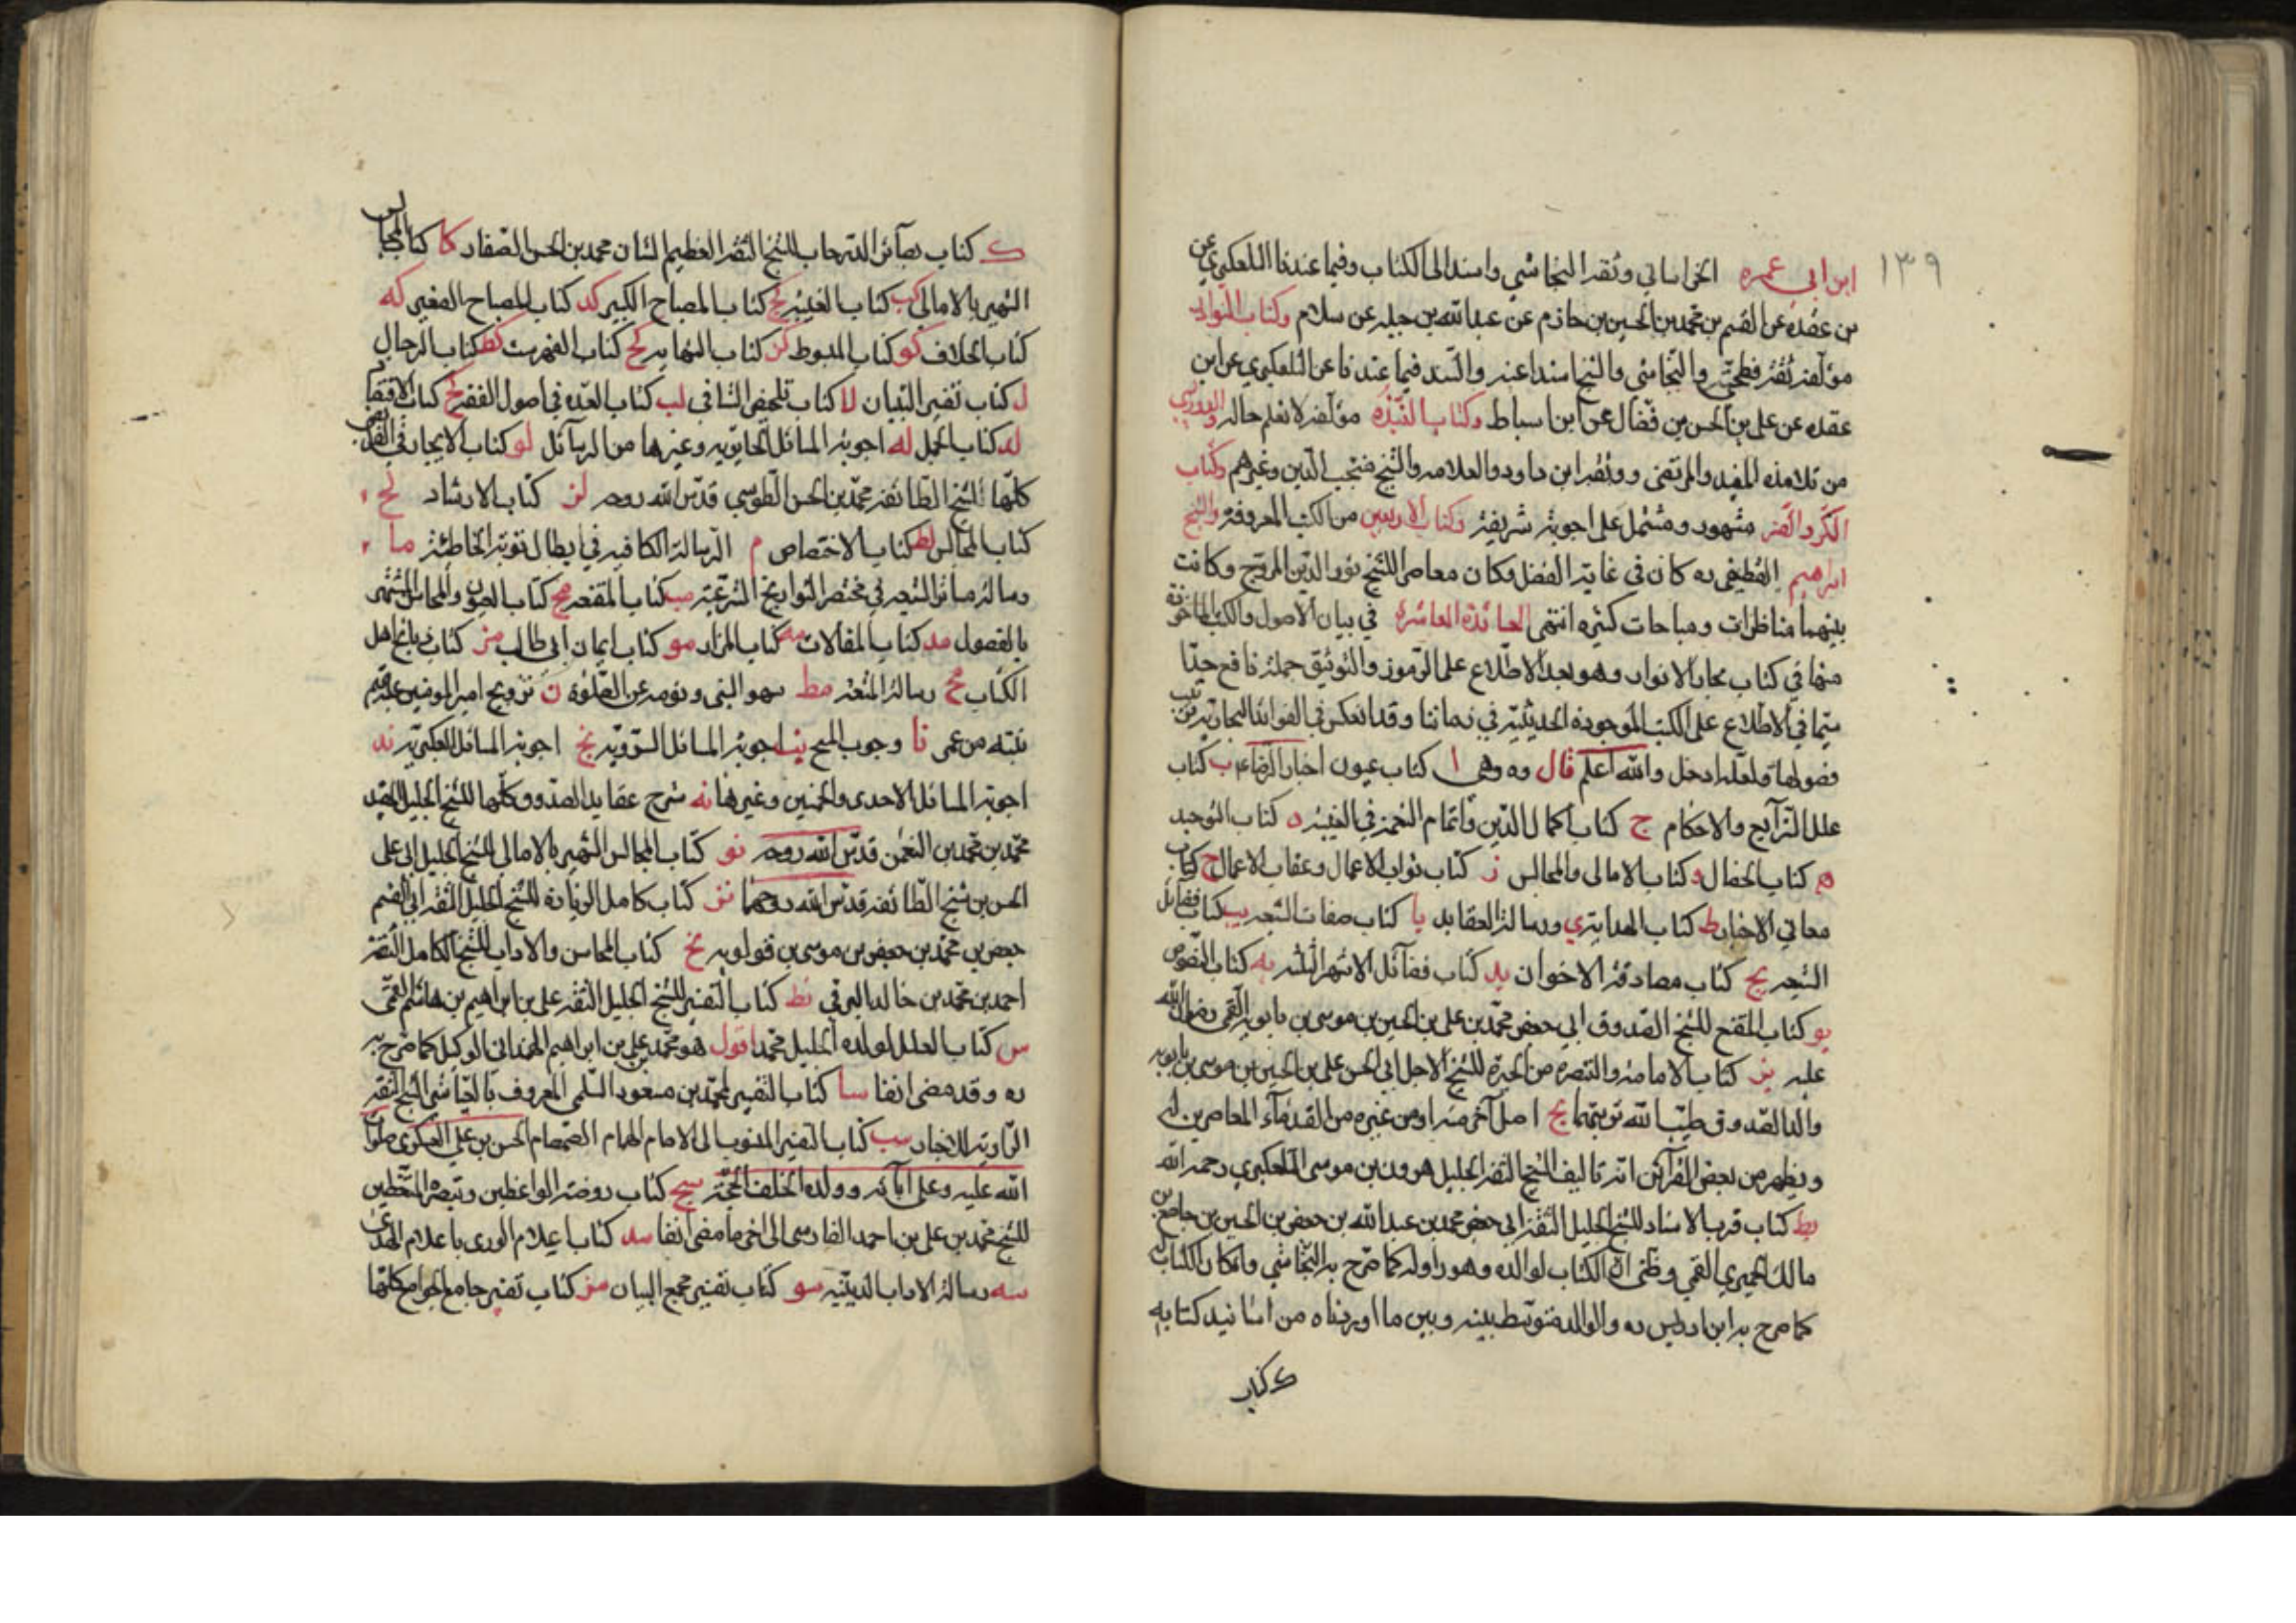 ١٣٩
ابن ابى عمره الخراسانى وثقه النجاشي واسند الى الكتاب وفيما عندنا التلعكبري عن
بن عقده عن القسم بن محمد بن الحسين بن حازم عن عبد الله بن جبله عن سلام وكتاب النوادر
مؤلفه ثقة فطحيّ والنجاشي والشيخ اسندا عنه والسند فيما عندنا عن التلعكبري عن ابن
عقده عن علي بن الحسن بن فضّال عن ابن اسباط وكتاب النبذه مؤلفه لا نعلم حاله والدوريستي
من تلامذه المفيد والمرتضى ووثقه ابن داود والعلامه والشيخ منتجب الدين وغيرهم وكتاب
الكرّ والفرّ مشهور ومشتمل على اجوبة شريفة وكتاب الاربعين من الكتب المعروفة والشيخ
ابراهيم القطيفى ره كان في غاية الفضل وكان معاصرا للشيخ نور الدين المروج وكانت
بينهما مناظرات ومباحثات كثيره انتهى الفائدة العاشرة في بيان الاصول والكتب الماخوذة
منها في كتاب بحار الانوار وهو بعد الاطّلاع على الرّموز والتوثيق جملة نافع جدّا
سيّما في الاطلاع على الكتب الموجوده الحديثية في زماننا وقد انعكس في الفوائد النجاريه ترتيب
فصولها ولعله ادخل والله اعلم قال ره وهى ا كتاب عيون اخبار الرّضا ع ب كتاب
علل الشرآيع والاحكام ج كتاب اكمال الدّين واتمام النعمة في الغيبة د كتاب التوحيد
ه كتاب الخصال و كتاب الامالى والمجالس ز كتاب ثواب الاعمال وعقاب الاعمال ح كتاب
معاني الاخبار ط كتاب الهداية ي ورسالة العقايد يا كتاب صفات الشيعه يب كتاب فضائل
الشيعه يج كتاب مصادقة الاخوان يد كتاب فضآئل الاشهر الثلثه يه كتاب النصوص
يو كتاب المقنع للشيخ الصّدوق ابي جعفر محمّد بن على بن الحسين بن موسى بن بابويه القمى رضوان الله
عليه يز كتاب الامامة والتبصرة من الحيرة للشيخ الاجل ابي الحسن على بن الحسين بن موسى بن بابويه
والد الصّدوق طيّب الله تربتهما يح اصل آخر منه او من غيره من القدمآء المعاصرين له
ويظهر من بعض القرآئن انّه تاليف الشيخ الثقة الجليل هرون بن موسى التلعكبري رحمه الله
يط كتاب قرب الاسناد للشيخ الجليل الثقة ابى جعفر محمد بن عبد الله بن جعفر بن الحسين بن جامع بن
مالك الحميري القمي وظنّى انّ الكتاب لوالده وهو راو له كما صرّح به النجاشي وان كان الكتاب له
كما صرح به ابن ادريس ره والوالد متوسّط بينه وبين ما اوردناه من اسانيد كتابه
ك كتاب
ك كتاب بصآئر الدّرجات للشيخ الثقة العظيم الشان محمد بن الحسن الصّفار كا كتاب المجالس
الشهير بالامالى كب كتاب الغيبة كج كتاب المصباح الكبير كد كتاب المصباح الصغير كه
كتاب الخلاف كو كتاب المبسوط كز كتاب النهايه كح كتاب الفهرست كط كتاب الرجال
ل كتاب تفسير التبيان لا كتاب تلخيص الشافى لب كتاب العدّه في اصول الفقه لج كتاب الاقتصاد
لد كتاب الجمل له اجوبة المسائل الحايريه وغيرها من الرسآئل لو كتاب الايجاز في الفرائض
كلّها لشيخ الطّائفة محمّد بن الحسن الطّوسي قدّس الله روحه لز كتاب الارشاد لح
كتاب المجالس لط كتاب الاختصاص م الرسالة الكافيه في ابطال توبة الخاطئة ما
رسالة مسارّ الشيعه في مختصر التواريخ الشرعيّة مب كتاب المقنعه مج كتاب العيون والمحاسن المشتهر
بالفصول مد كتاب المقالات مه كتاب المزار مو كتاب ايمان ابى طالب مز كتاب ذبائح اهل
الكتاب مح رسالة المتعة مط سهو النبى ونومه عن الصّلوة ن تزويج امير المومنين عليه السلم
بنته من عمر نا وجوب المسح نب اجوبة المسائل السّرويّه نج اجوبة المسائل العكبريّه ند
اجوبة المسائل الاحدى والخمسين وغيرها نه شرح عقايد الصدّوق كلّها للشيخ الجليل المفيد
محمّد بن محمّد بن النعمن قدّس الله روحه نو كتاب المجالس الشهير بالامالى للشيخ الجليل ابى على
الحسن بن شيخ الطّائفة قدّس الله روحهما نز كتاب كامل الزيارة للشيخ الجليل الثقة ابى القسم
جعفر بن محمّد بن جعفر بن موسى بن قولويه نح كتاب المحاسن والاداب للشيخ الكامل الثقة
احمد بن محمّد بن خالد البرقي نط كتاب التفسير للشيخ الجليل الثقة على بن ابراهيم بن هاشم القمّى
س كتاب العلل لولده الجليل محمّد اقول هو محمّد بن علي بن ابراهيم الهمدانى الوكيل كما صرّح به
ره وقد مضى انفا سا كتاب التفسير لمحمّد بن مسعود السّلمى المعروف بالعيّاشى الشيخ الثقة
الرّاوية للاخبار سب كتاب التفسير المنسوب الى الامام الهمام الصّمصام الحسن بن علي العسكرى صلوات
الله عليه وعلى آبآئه وولده الخلف الحجّة سج كتاب روضة الواعظين وتبصرة المتّعظين
للشيخ محمّد بن على بن احمد الفارسى الى اخر ما مضى انفا سد كتاب اعلام الورى باعلام الهدى
سه رسالة الاداب الدينيّه سو كتاب تفسير مجمع البيان سز كتاب تفسير جامع الجوامع كلّها